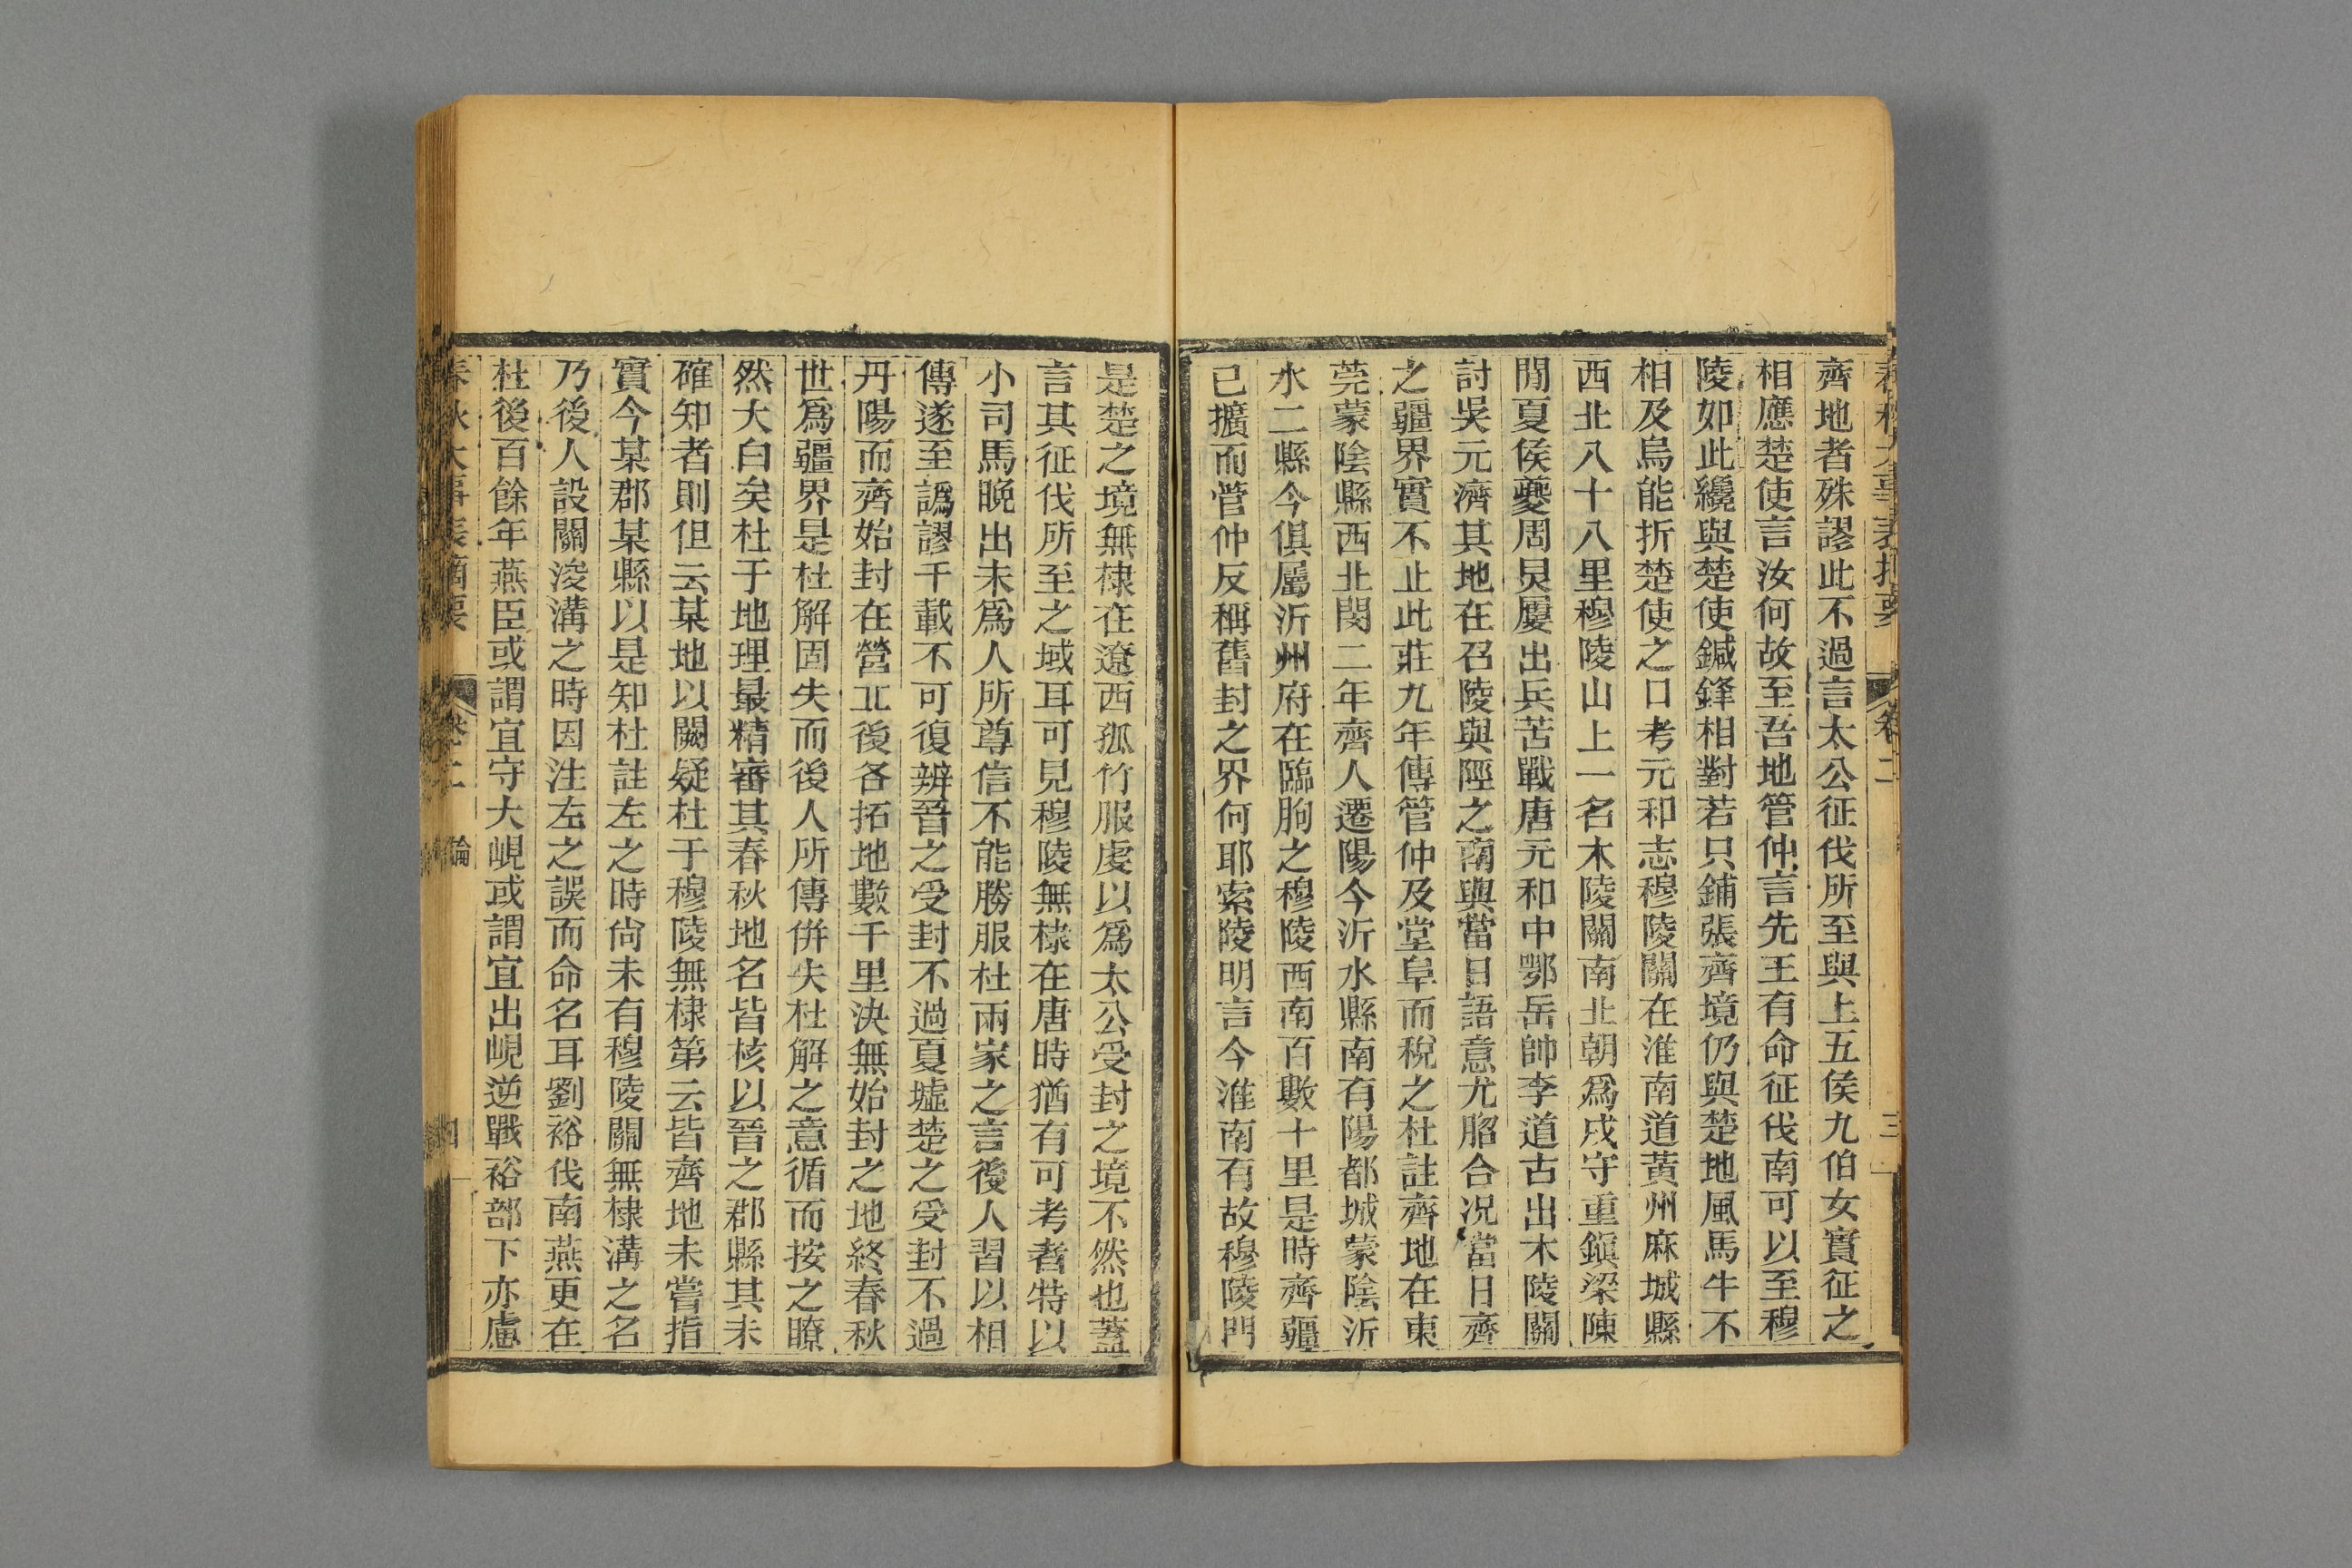 春秋大事表摘要 卷二 三
齊地者殊謬此不過言太公征伐所至與上五侯九伯女實征之
相應楚使言汝何故至吾地管仲言先王有命征伐南可以至穆
陵如此纔與楚使鍼鋒相對若只鋪張齊境仍與楚地風馬牛不
相及烏能折楚使之口考元和志穆陵關在淮南道黃州麻城縣
西北八十八里穆陵山上一名木陵關南北朝爲戍守重鎭梁陳
間夏侯夔周炅屢出兵苦戰唐元和中鄂岳帥李道古出木陵關
討吳元濟其地在召陵與陘之南與當日語意尤脗合况當日齊
之疆界實不止此莊九年傳管仲及堂阜而稅之杜註齊地在東
莞蒙陰縣西北閔二年齊人遷陽今沂水縣南有陽都城蒙陰沂
水二縣今俱屬沂州府在臨朐之穆陵西南百數十里是時齊疆
已擴而管仲反稱舊封之界何耶索陵明言今淮南有故穆陵門
是楚之境無棣在遼西孤竹服虔以爲太公受封之境不然也蓋
言其征伐所至之域耳可見穆陵無棣在唐時猶有可考者特以
小司馬晚出未爲人所尊信不能勝服杜兩家之言後人習以相
傳遂至譌謬千載不可復辨晉之受封不過夏墟楚之受封不過
丹陽而齊始封在營丘後各拓地數千里決無始封之地終春秋
世爲疆界是杜解固失而後人所傳併失杜解之意循而按之瞭
然大白矣杜于地理最精審其春秋地名皆核以晉之郡縣其未
確知者則但云某地以闕疑杜于穆陵無棣第云皆齊地未嘗指
實今某郡某縣以是知杜註左之時尙未有穆陵關無棣溝之名
乃後人設關浚溝之時因注左之誤而命名耳劉裕伐南燕更在
杜後百餘年燕臣或謂宜守大峴或謂宜出峴逆戰裕部下亦慮
春秋大事表摘要 卷二 論 四